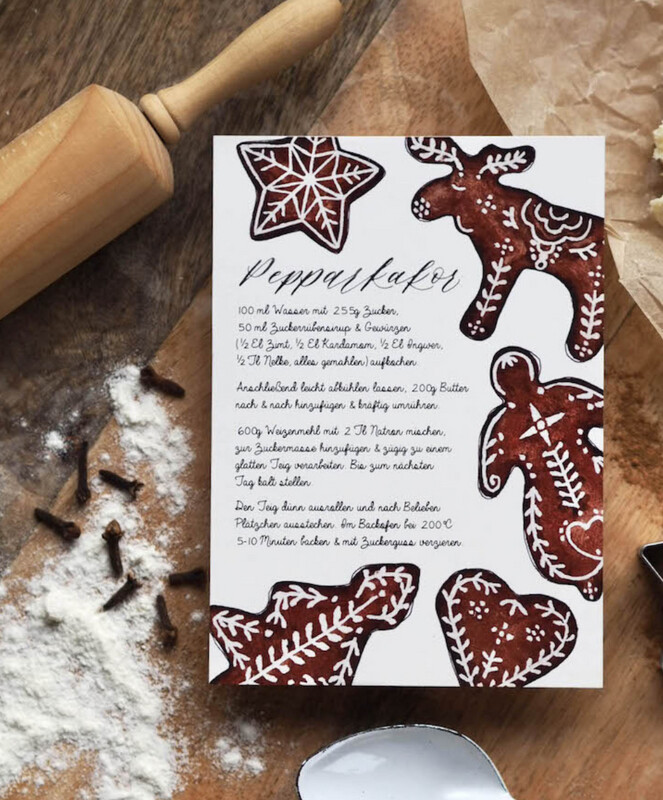 Pepparkakor
100 ml Wasser mit 255g Zucker,
50 ml Zuckerrübensirup & Gewürzen
(½ El Zimt, ½ El Kardamom, ½ El Ingwer,
½ Tl Nelke, alles gemahlen) aufkochen.
Anschließend leicht abkühlen lassen, 200g Butter
nach & nach hinzufügen & kräftig umrühren.
600g Weizenmehl mit 2 Tl Natron mischen,
zur Zuckermasse hinzufügen & zügig zu einem
glatten Teig verarbeiten. Bis zum nächsten
Tag kalt stellen.
Den Teig dünn ausrollen und nach Belieben
Plätzchen ausstechen. Im Backofen bei 200°C
5-10 Minuten backen & mit Zuckerguss verzieren.